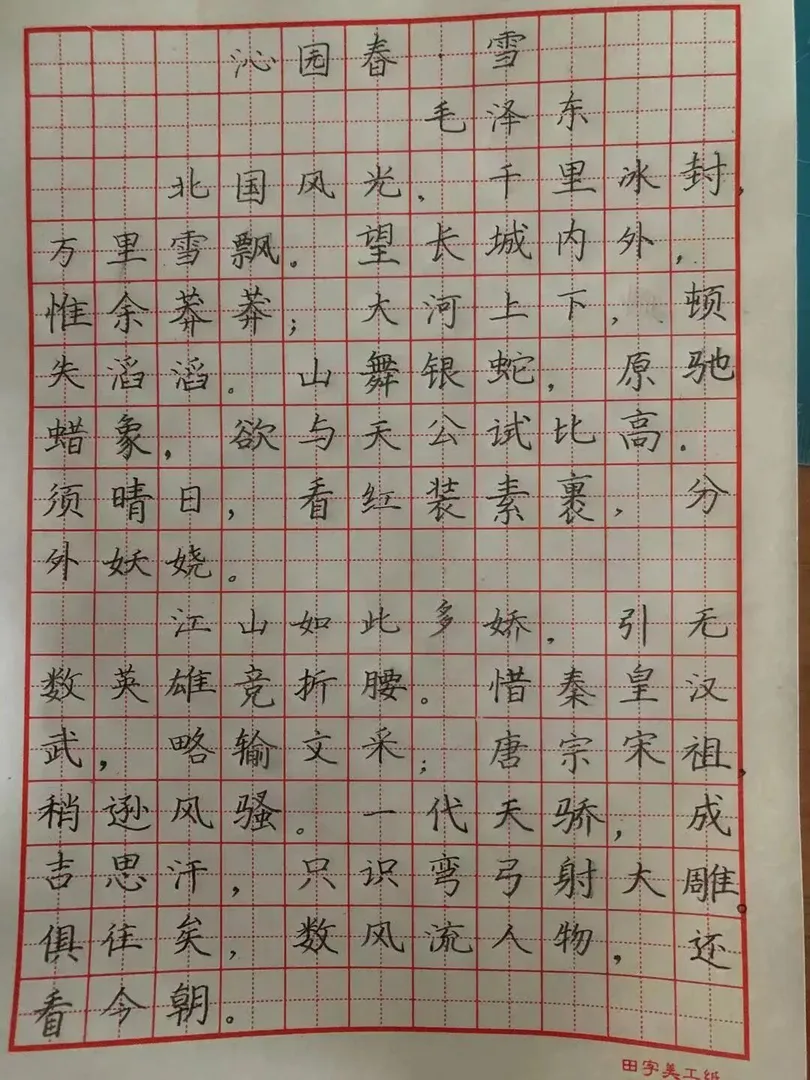 沁园春·雪
毛泽东
北国风光，千里冰封，
万里雪飘。望长城内外，
惟余莽莽；大河上下，顿
失滔滔。山舞银蛇，原驰
蜡象，欲与天公试比高。
须晴日，看红装素裹，分
外妖娆。
江山如此多娇，引无
数英雄竞折腰。惜秦皇汉
武，略输文采；唐宗宋祖，
稍逊风骚。一代天骄，成
吉思汗，只识弯弓射大雕。
俱往矣，数风流人物，还
看今朝。
田字美工纸